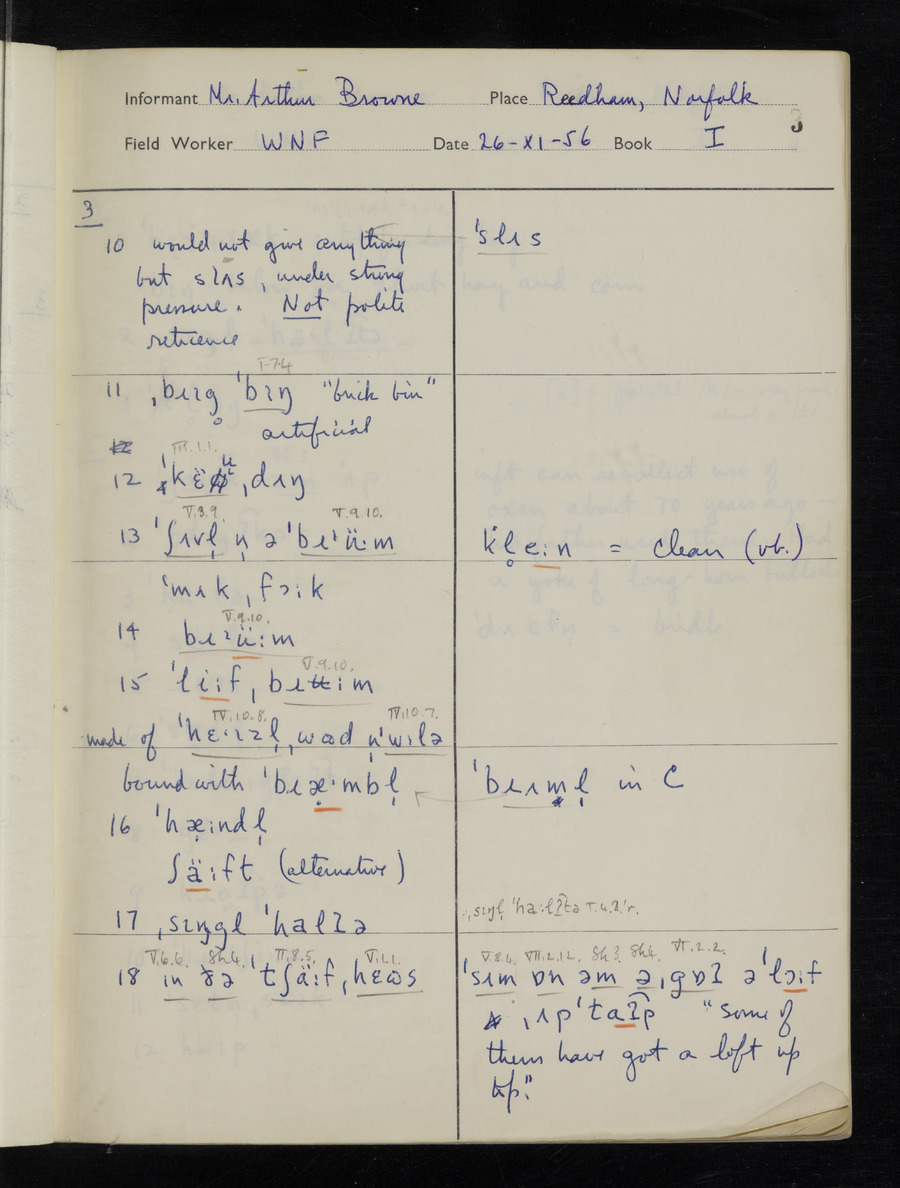 Informant Mr. Arthur Browne Place Reedham, Norfolk
3
Field Worker WNF Date 26-XI-56 Book I
3
10 would not give anything
but slʌs, under strong
pressure. Not polite
reticence
ˈslʌs
I.7.4
11 ˌbɪɪg ˈbɪŋ "brick bin"
artificial
III.1.1.
12 ˌdɪŋ
V.3.9. V.9.10.
13 ˈʃɪvl̩ n̩ ə ˈbɪˑüːm
ˈmʌk ˌfɔːk
kl̥eːn = clean (vb.)
V.9.10.
14 bɪɪüːm
V.9.10.
15 ˈliːf, bɪʉːm
IV.10.8. IV.10.7.
made of ˈhɛˑɪzl̩, wɷd n̩ ˈwɪlə
bound with ˈbɪæˑmbl̩
ˈbɪʌml̩ in C
16 ˈhæːndl̩
ʃäːft (alternative)
17 ˌsɪŋgl ˈhalʔə
ˌsɪŋl̩ ˈhaːlʔtə I.4.3.'r.
V.6.6. Sh4. II.8.5. V.1.1.
18 in ðə ˈtʃäːf ˌhɛɷs
V.8.4. VII.2.12. Sh3. Sh4. VI.2.2.
ˈsʌm ɒn əm əˌgɒʔ ə ˈlɔːf
ˌʌp ˈtaʔp "Some of
them have got a loft up
top."